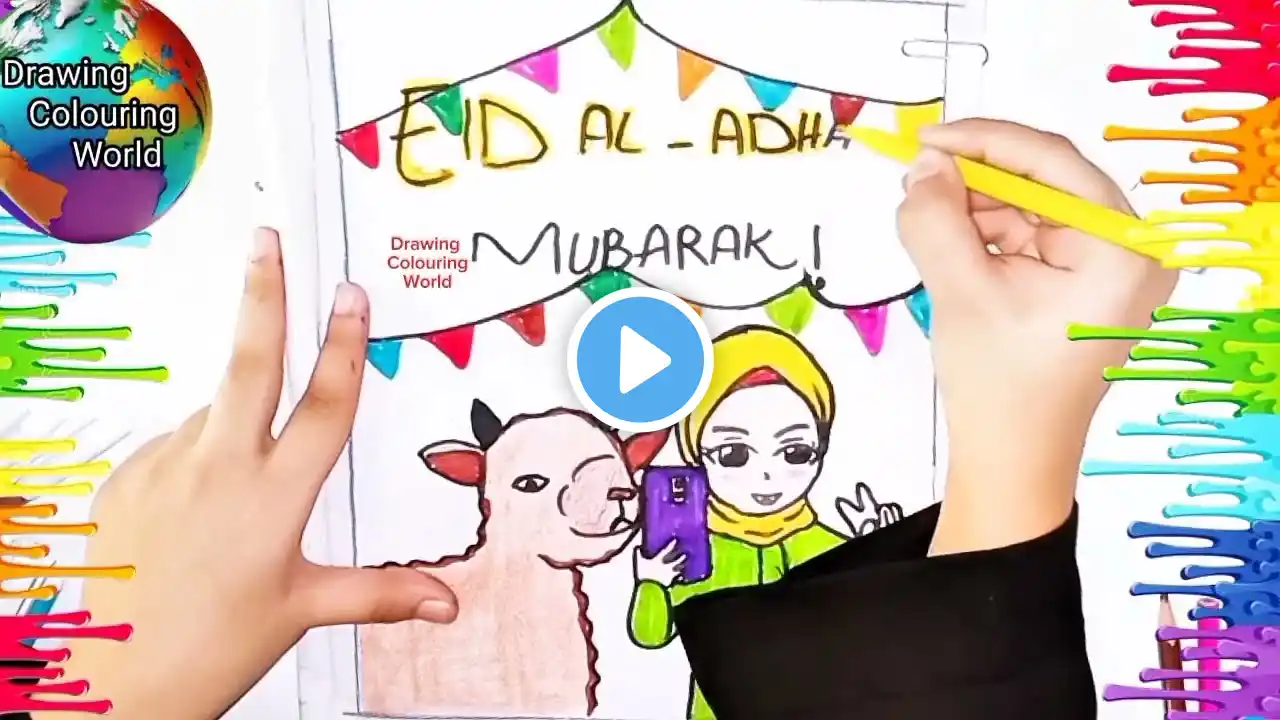 Drawing
Colouring
World
EID AL - ADHA
MUBARAK!
Drawing
Colouring
World